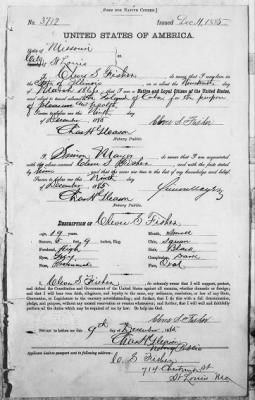 [FORM FOR NATIVE CITIZEN.]
No. 3712 Issued Dec 11, 1885
UNITED STATES OF AMERICA.
State of Missouri
City of St Louis
I, Cleve S Fisher, do swear that I was born in
the State of Illinois, on or about the
March 1866; that I am a Native and Loyal Citizen of the United States,
and about to travel abroad Island of Cuba for the purpose
of pleasure and health
Sworn to before me this Ninth
day of December, 1885
Chas H Gleason Cleve S. Fisher
Notary Public.
I, Simon Mayer, do swear that I am acquainted
with the above named Cleve S Fisher, and with the facts stated
by him, and that the same are true to the best of my knowledge and belief.
Sworn to before me this Ninth
day of December 1885 Simon Mayer
Chas H Gleason
Notary Public.
DESCRIPTION OF Cleve S Fisher
Age: 19 years. Mouth: Small
Stature: 5 feet 9 inches, Eng. Chin: Square
Forehead: High Hair: Black
Eyes: Grey Complexion: Dark
Nose: Face: Oval
I, Cleve S Fisher, do solemnly swear that I will support, protect,
and defend the Constitution and Government of the United States against all enemies, whether domestic or foreign;
and that I will bear true faith, allegiance, and loyalty to the same, any ordinance, resolution, or law of any State,
Convention, or Legislature to the contrary notwithstanding; and further, that I do this with a full determination,
pledge, and purpose, without any mental reservation or evasion whatsoever; and further, that I will well and faithfully
perform all the duties which may be required of me by law: So help me God.
Cleve S. Fisher
Sworn to before me this 9th day of December 1885
Chas H Gleason
Notary Public
Applicant desires passport sent to following address:
C. S Fisher
St Louis Mo